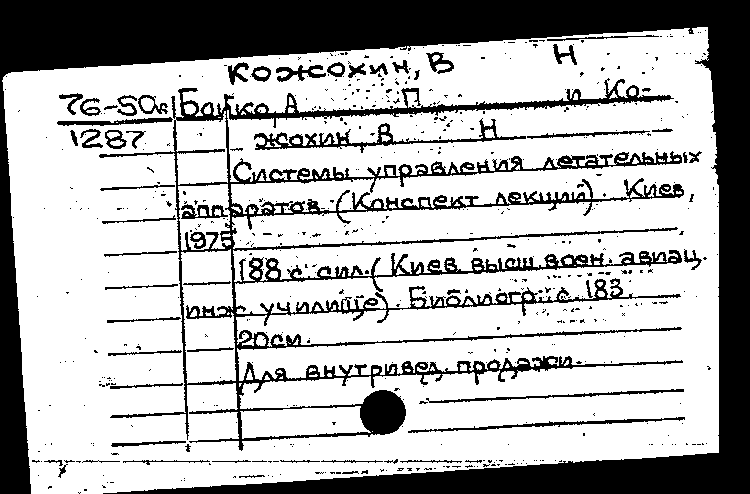 Кожохин, В Н
76-50 Бойко, А П и Ко-
1287 жохин, В Н
Системы управления летательных
аппаратов. (Конспект лекций). Киев,
1975
188 с. с ил. (Киев. высш. воен. авиац.
инж. училище). Библиогр.: с. 183.
20см.
Для внутривед. продажи.